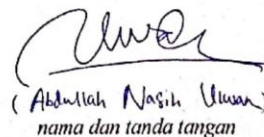 ( Abdullah Nasih Ulwan )
nama dan tanda tangan